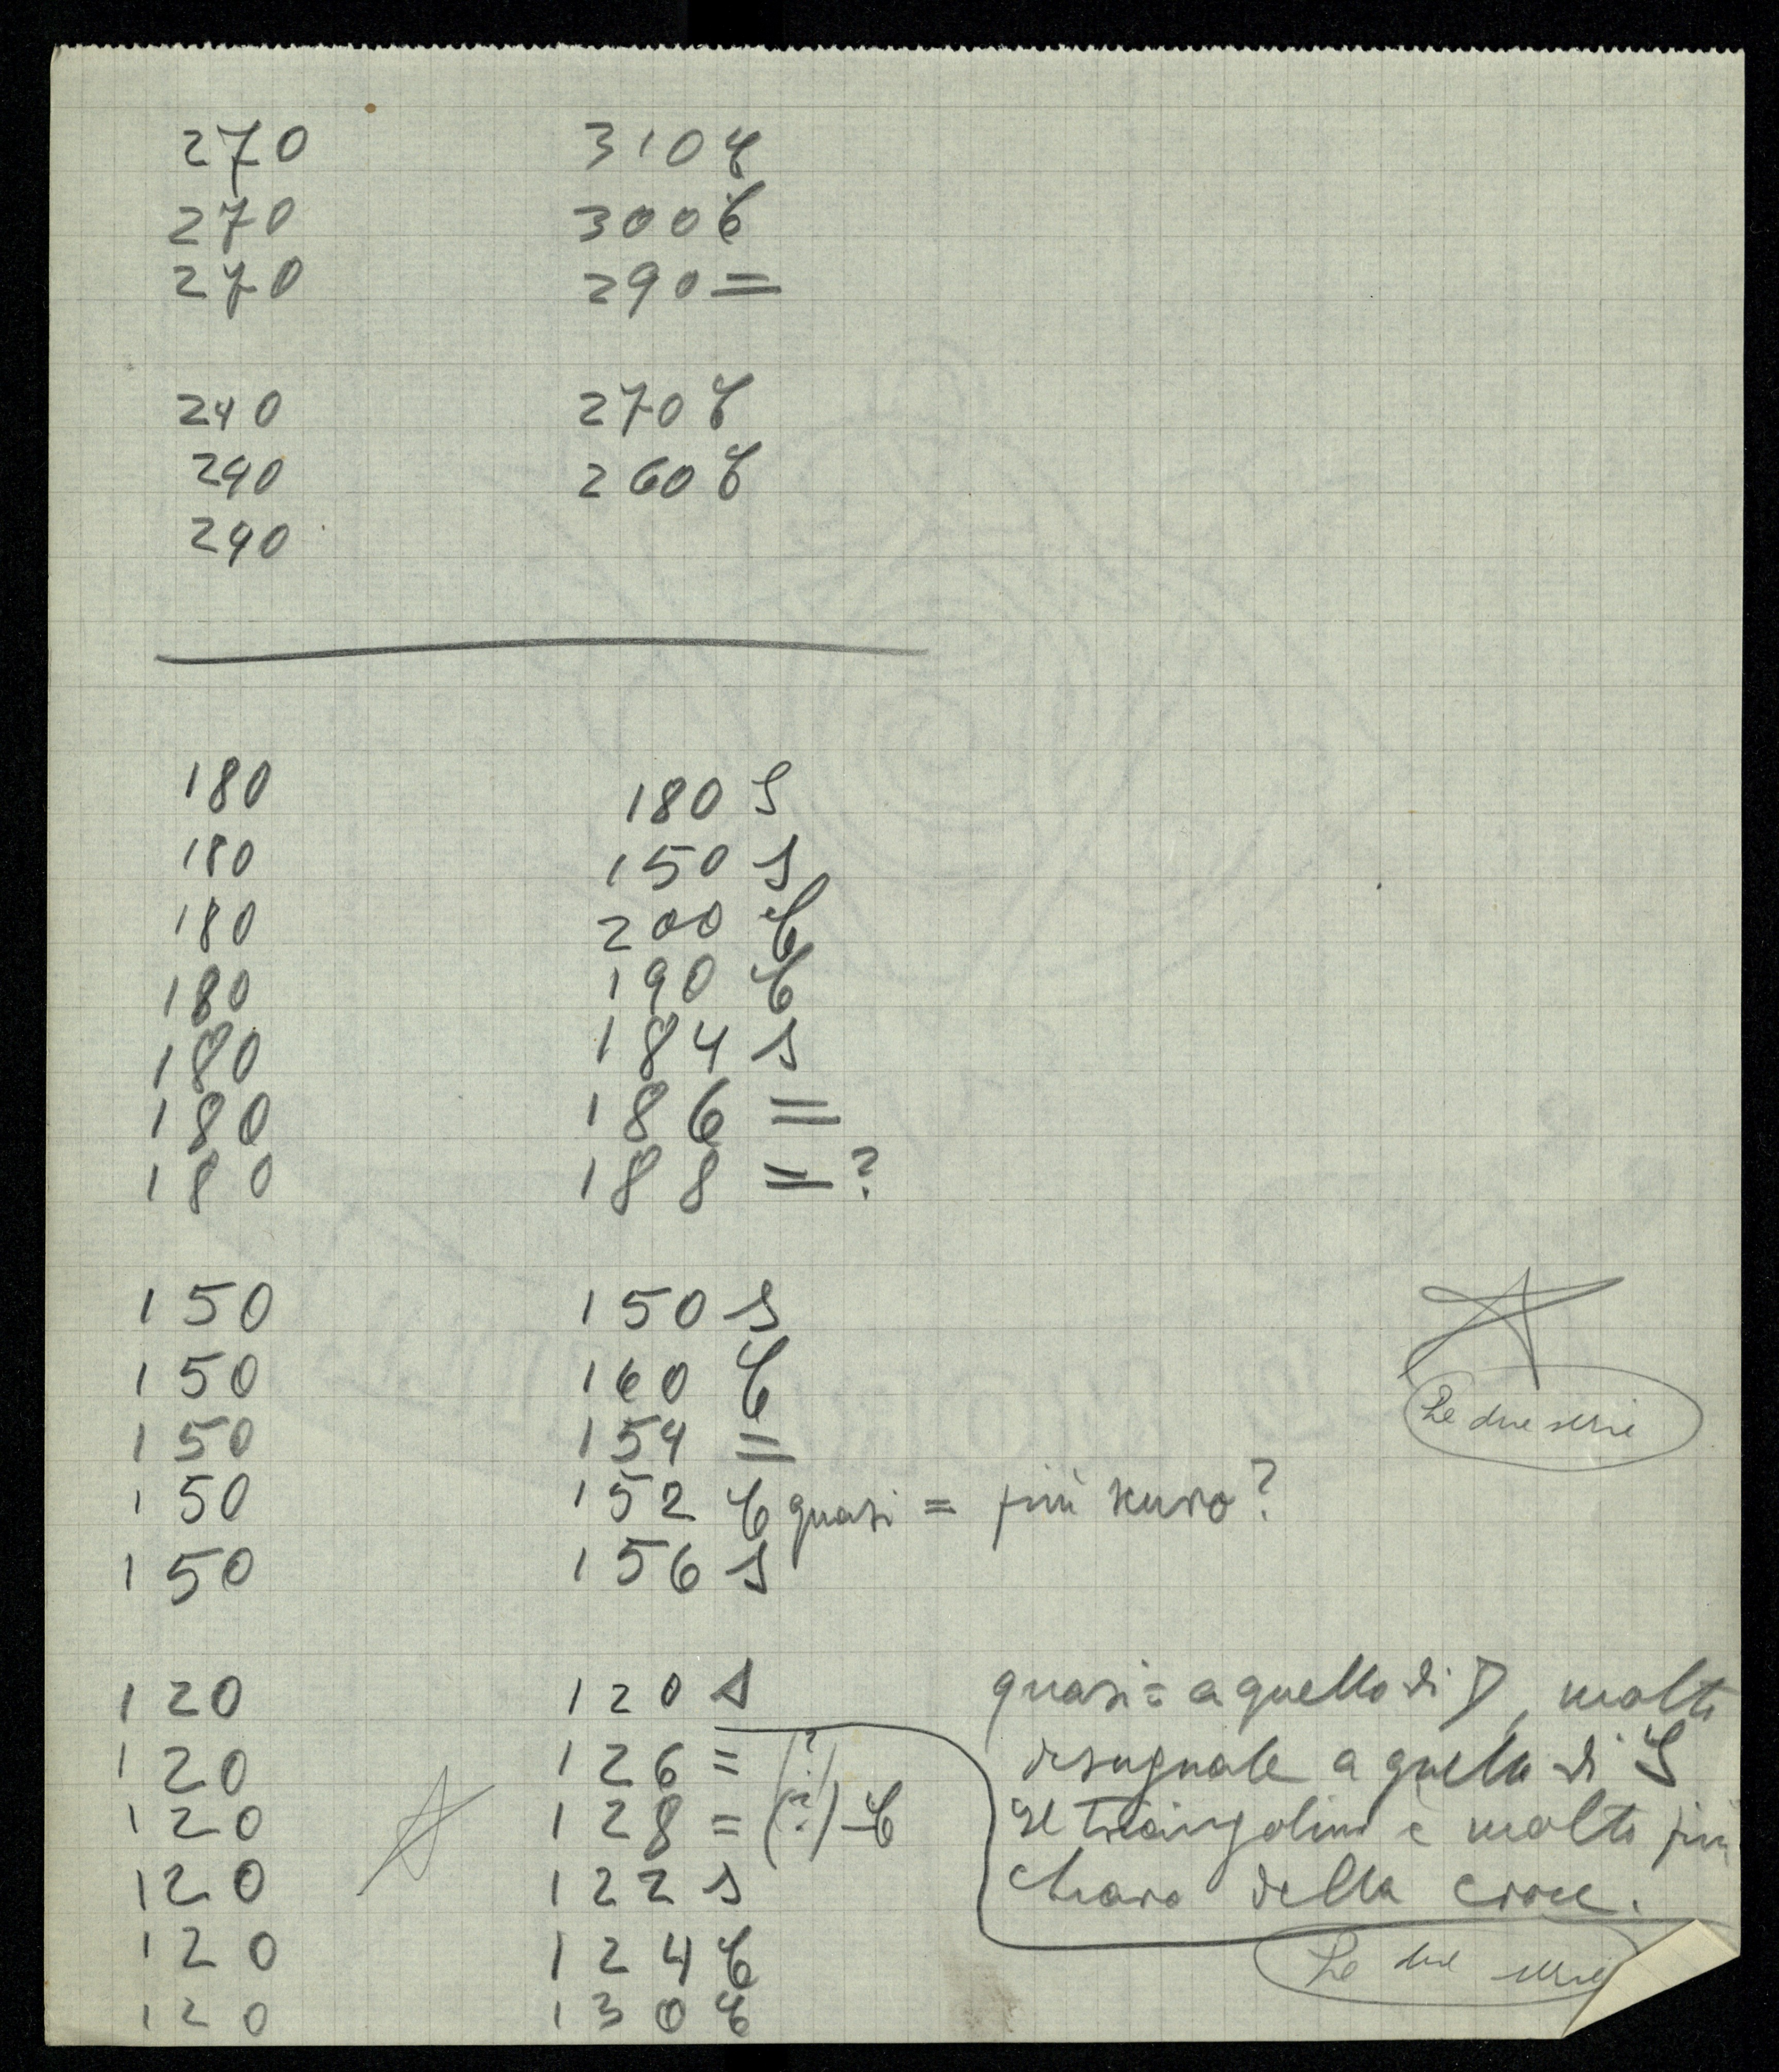 270 310 C
270 300 C
270 290 =
240 270 C
240 260 C
240
180 180 S
180 150 S
180 200 C
180 190 C
180 184 S
180 186 =
180 188 = ?
150 150 S
150 160 C
150 154 =
150 152 C quasi = più scuro?
150 156 S
Le due serie
120 120 S
quasi = a quello di D, molto
120 126 = (?)
disuguale a quella di S
120 128 = (?) - C
Il triangolino è molto più
120 122 S
chiaro della croce.
120 124 C
Le due serie
120 130 C